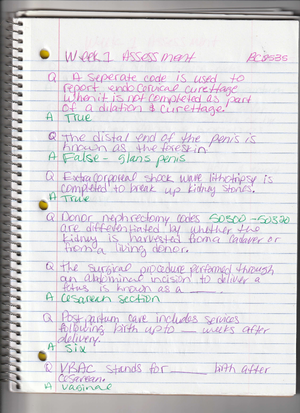 Week 1 Assessment
Q A seperate code is used to
report endocervical curettage
when it is not completed as part
of a dilation & curettage.
A True
Q The distal end of the penis is
known as the foreskin
A False - glans penis
Q Extracorporeal shock wave lithotripsy is
completed to break up kidney stones.
A True
Q Donor nephrectomy codes 50300-50320
are differentiated by whether the
kidney is harvested from a cadaver or
from a living donor.
Q The surgical procedure performed through
an abdominal incision to deliver a
fetus is known as a ____.
A Cesarean section
Q Postpartum care includes services
following birth up to __ weeks after
delivery.
A Six
Q VBAC stands for ____ birth after
cesarean.
A vaginal